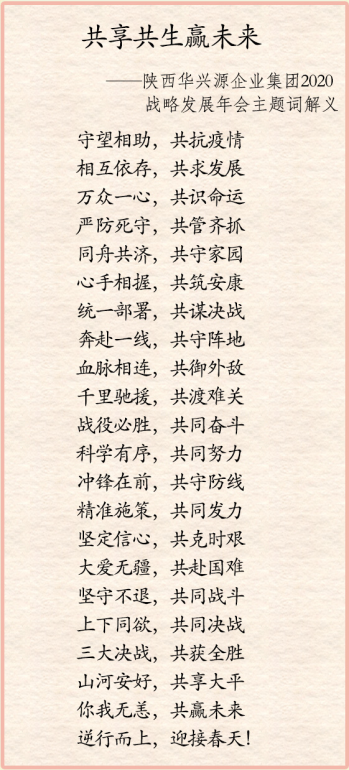 共享共生赢未来
——陕西华兴源企业集团2020
战略发展年会主题词解义
守望相助，共抗疫情
相互依存，共求发展
万众一心，共识命运
严防死守，共管齐抓
同舟共济，共守家园
心手相握，共筑安康
统一部署，共谋决战
奔赴一线，共守阵地
血脉相连，共御外敌
千里驰援，共渡难关
战役必胜，共同奋斗
科学有序，共同努力
冲锋在前，共守防线
精准施策，共同发力
坚定信心，共克时艰
大爱无疆，共赴国难
坚守不退，共同战斗
上下同欲，共同决战
三大决战，共获全胜
山河安好，共享大平
你我无恙，共赢未来
逆行而上，迎接春天!